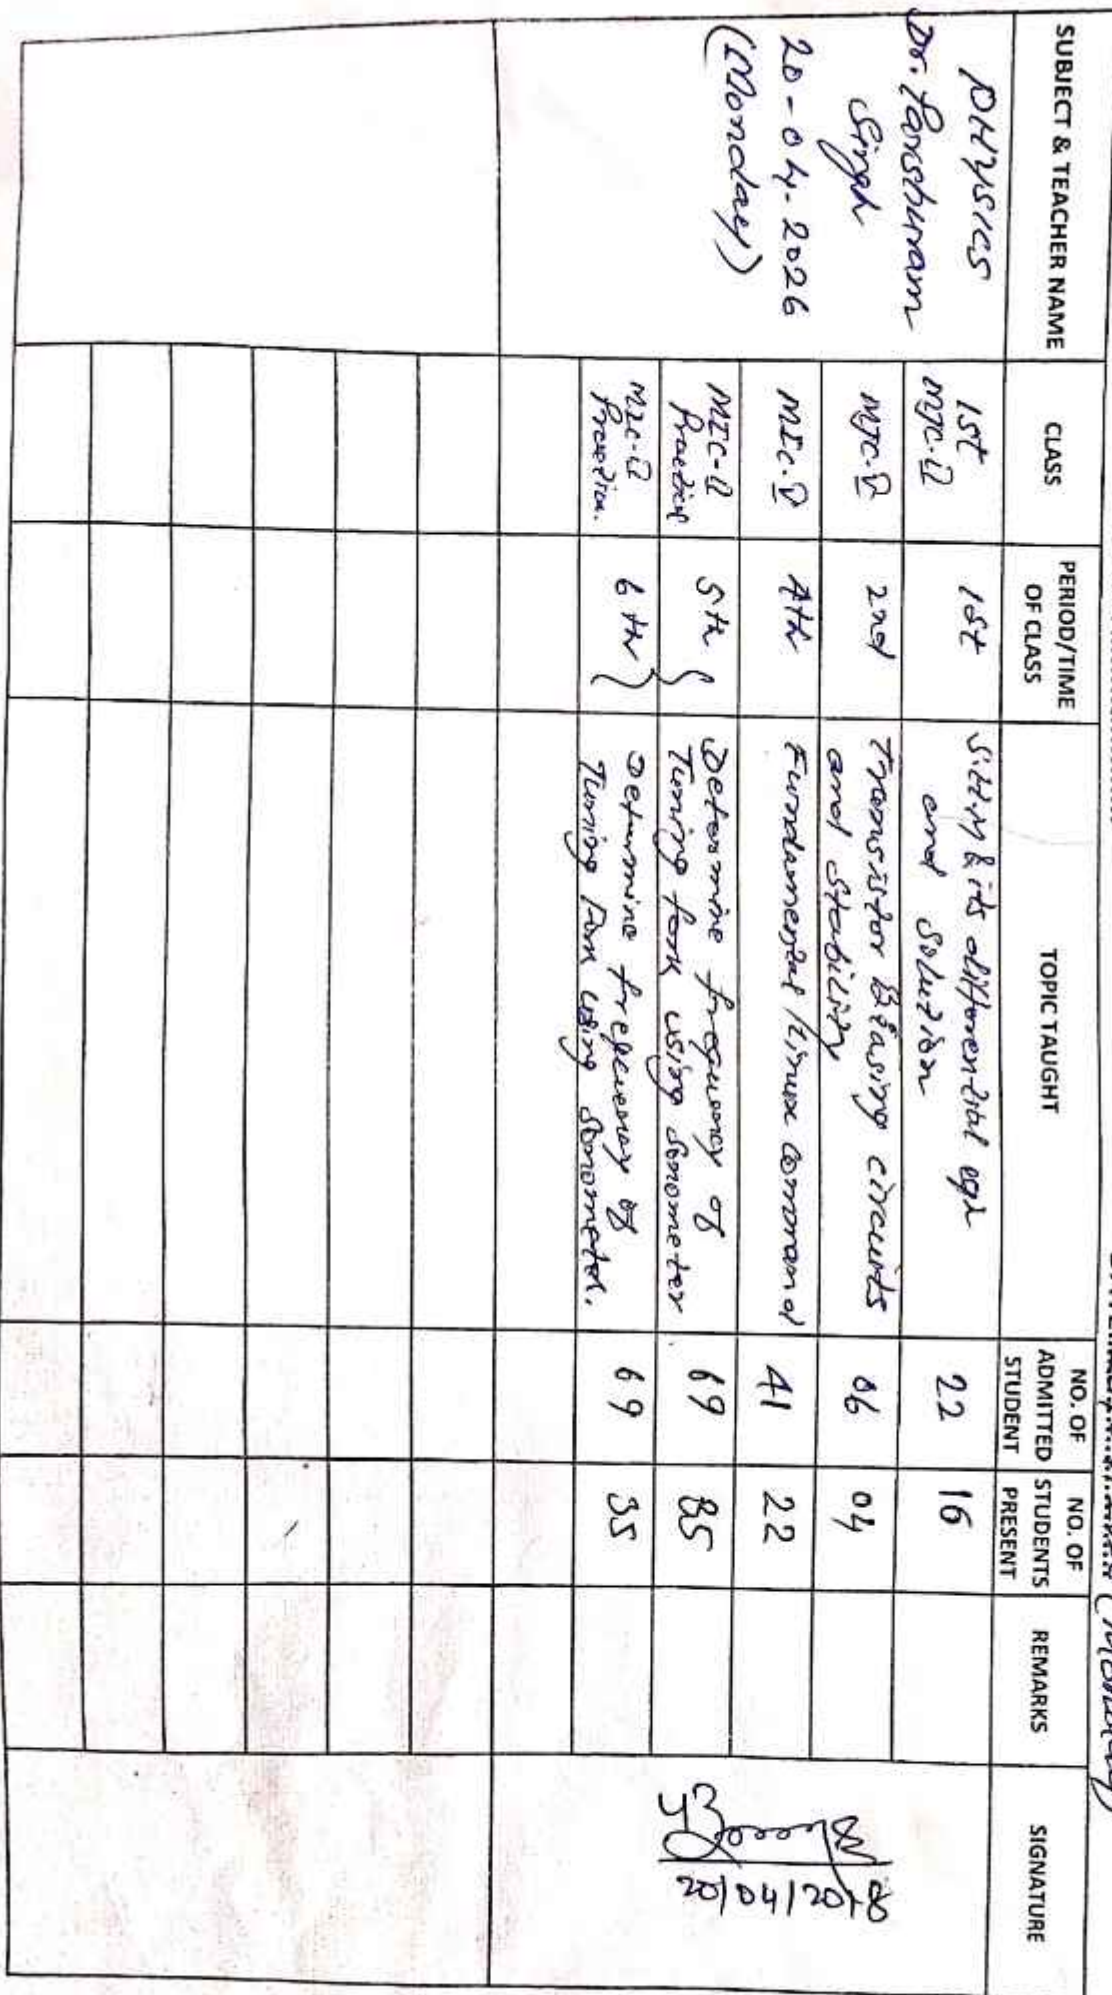 (Monday)
SUBJECT & TEACHER NAME
CLASS
PERIOD/TIME
OF CLASS
TOPIC TAUGHT
NO. OF
ADMITTED
STUDENT
NO. OF
STUDENTS
PRESENT
REMARKS
SIGNATURE
PHYSICS
Dr. Parshuram
Singh
20-04-2026
(Monday)
1st
MJC-II
1st
S.H.M & its differential eqn
and solution
22
16
MJC-V
2nd
Transistor Biasing circuits
and Stability
06
04
MIC-V
4th
Fundamental Linux command
41
22
MIC-II
Practical
5th
Determine frequency of
Tuning fork using Sonometer
69
35
MIC-II
6th
Determine frequency of
Tuning Fork using Sonometer.
69
35